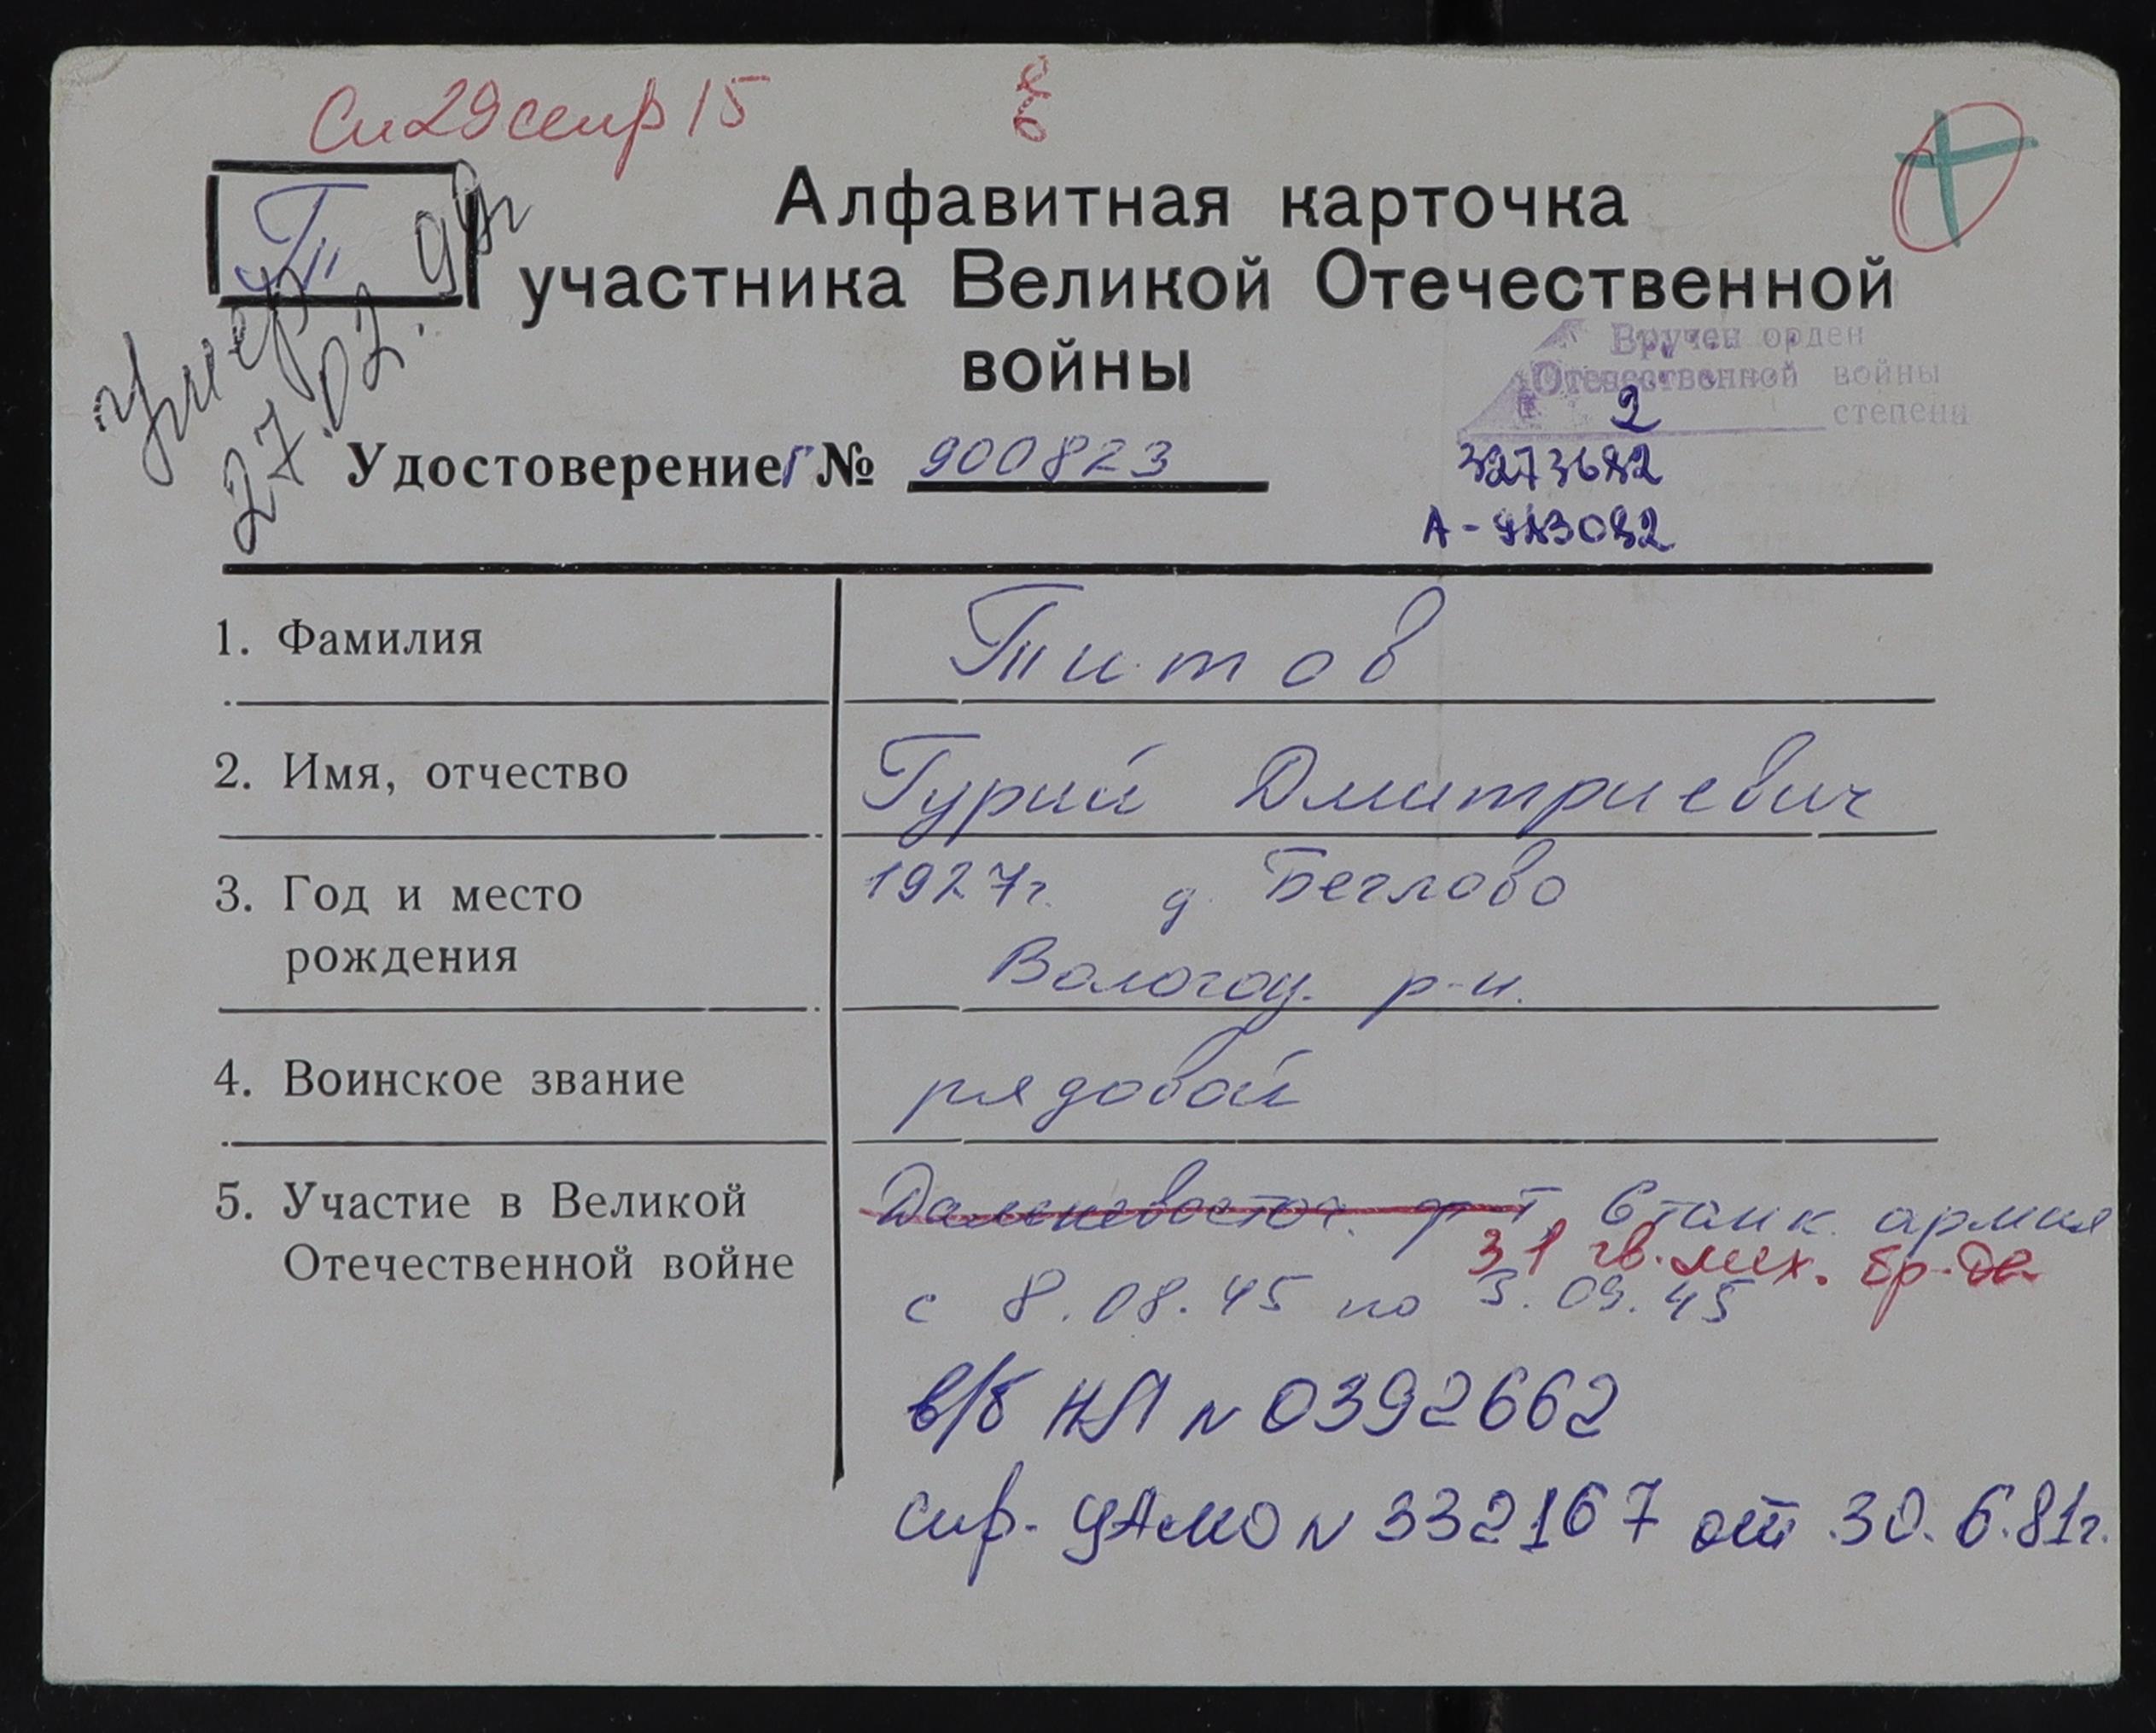 Сп 29 стр 15
Т
Умер
27.02.99г
Алфавитная карточка
участника Великой Отечественной
войны
Вручен орден
Отечественной войны
2 степени
Удостоверение Г № 900823
3273682
1. Фамилия
Титов
2. Имя, отчество
Гурий Дмитриевич
3. Год и место
рождения
1927г. д. Беглово
Вологод. р-н.
4. Воинское звание
рядовой
5. Участие в Великой
Отечественной войне
Дальневосточ. фр-т, 6 танк. армия
31 гв. мех. бр-да
с 8.08.45 по 3.09.45
в/б НЛ N 0392662
спр. ЦАМО N 332167 от 30.6.81г.